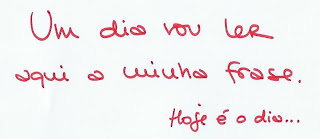 Um dia vou ler
aqui a minha frase.
Hoje é o dia...